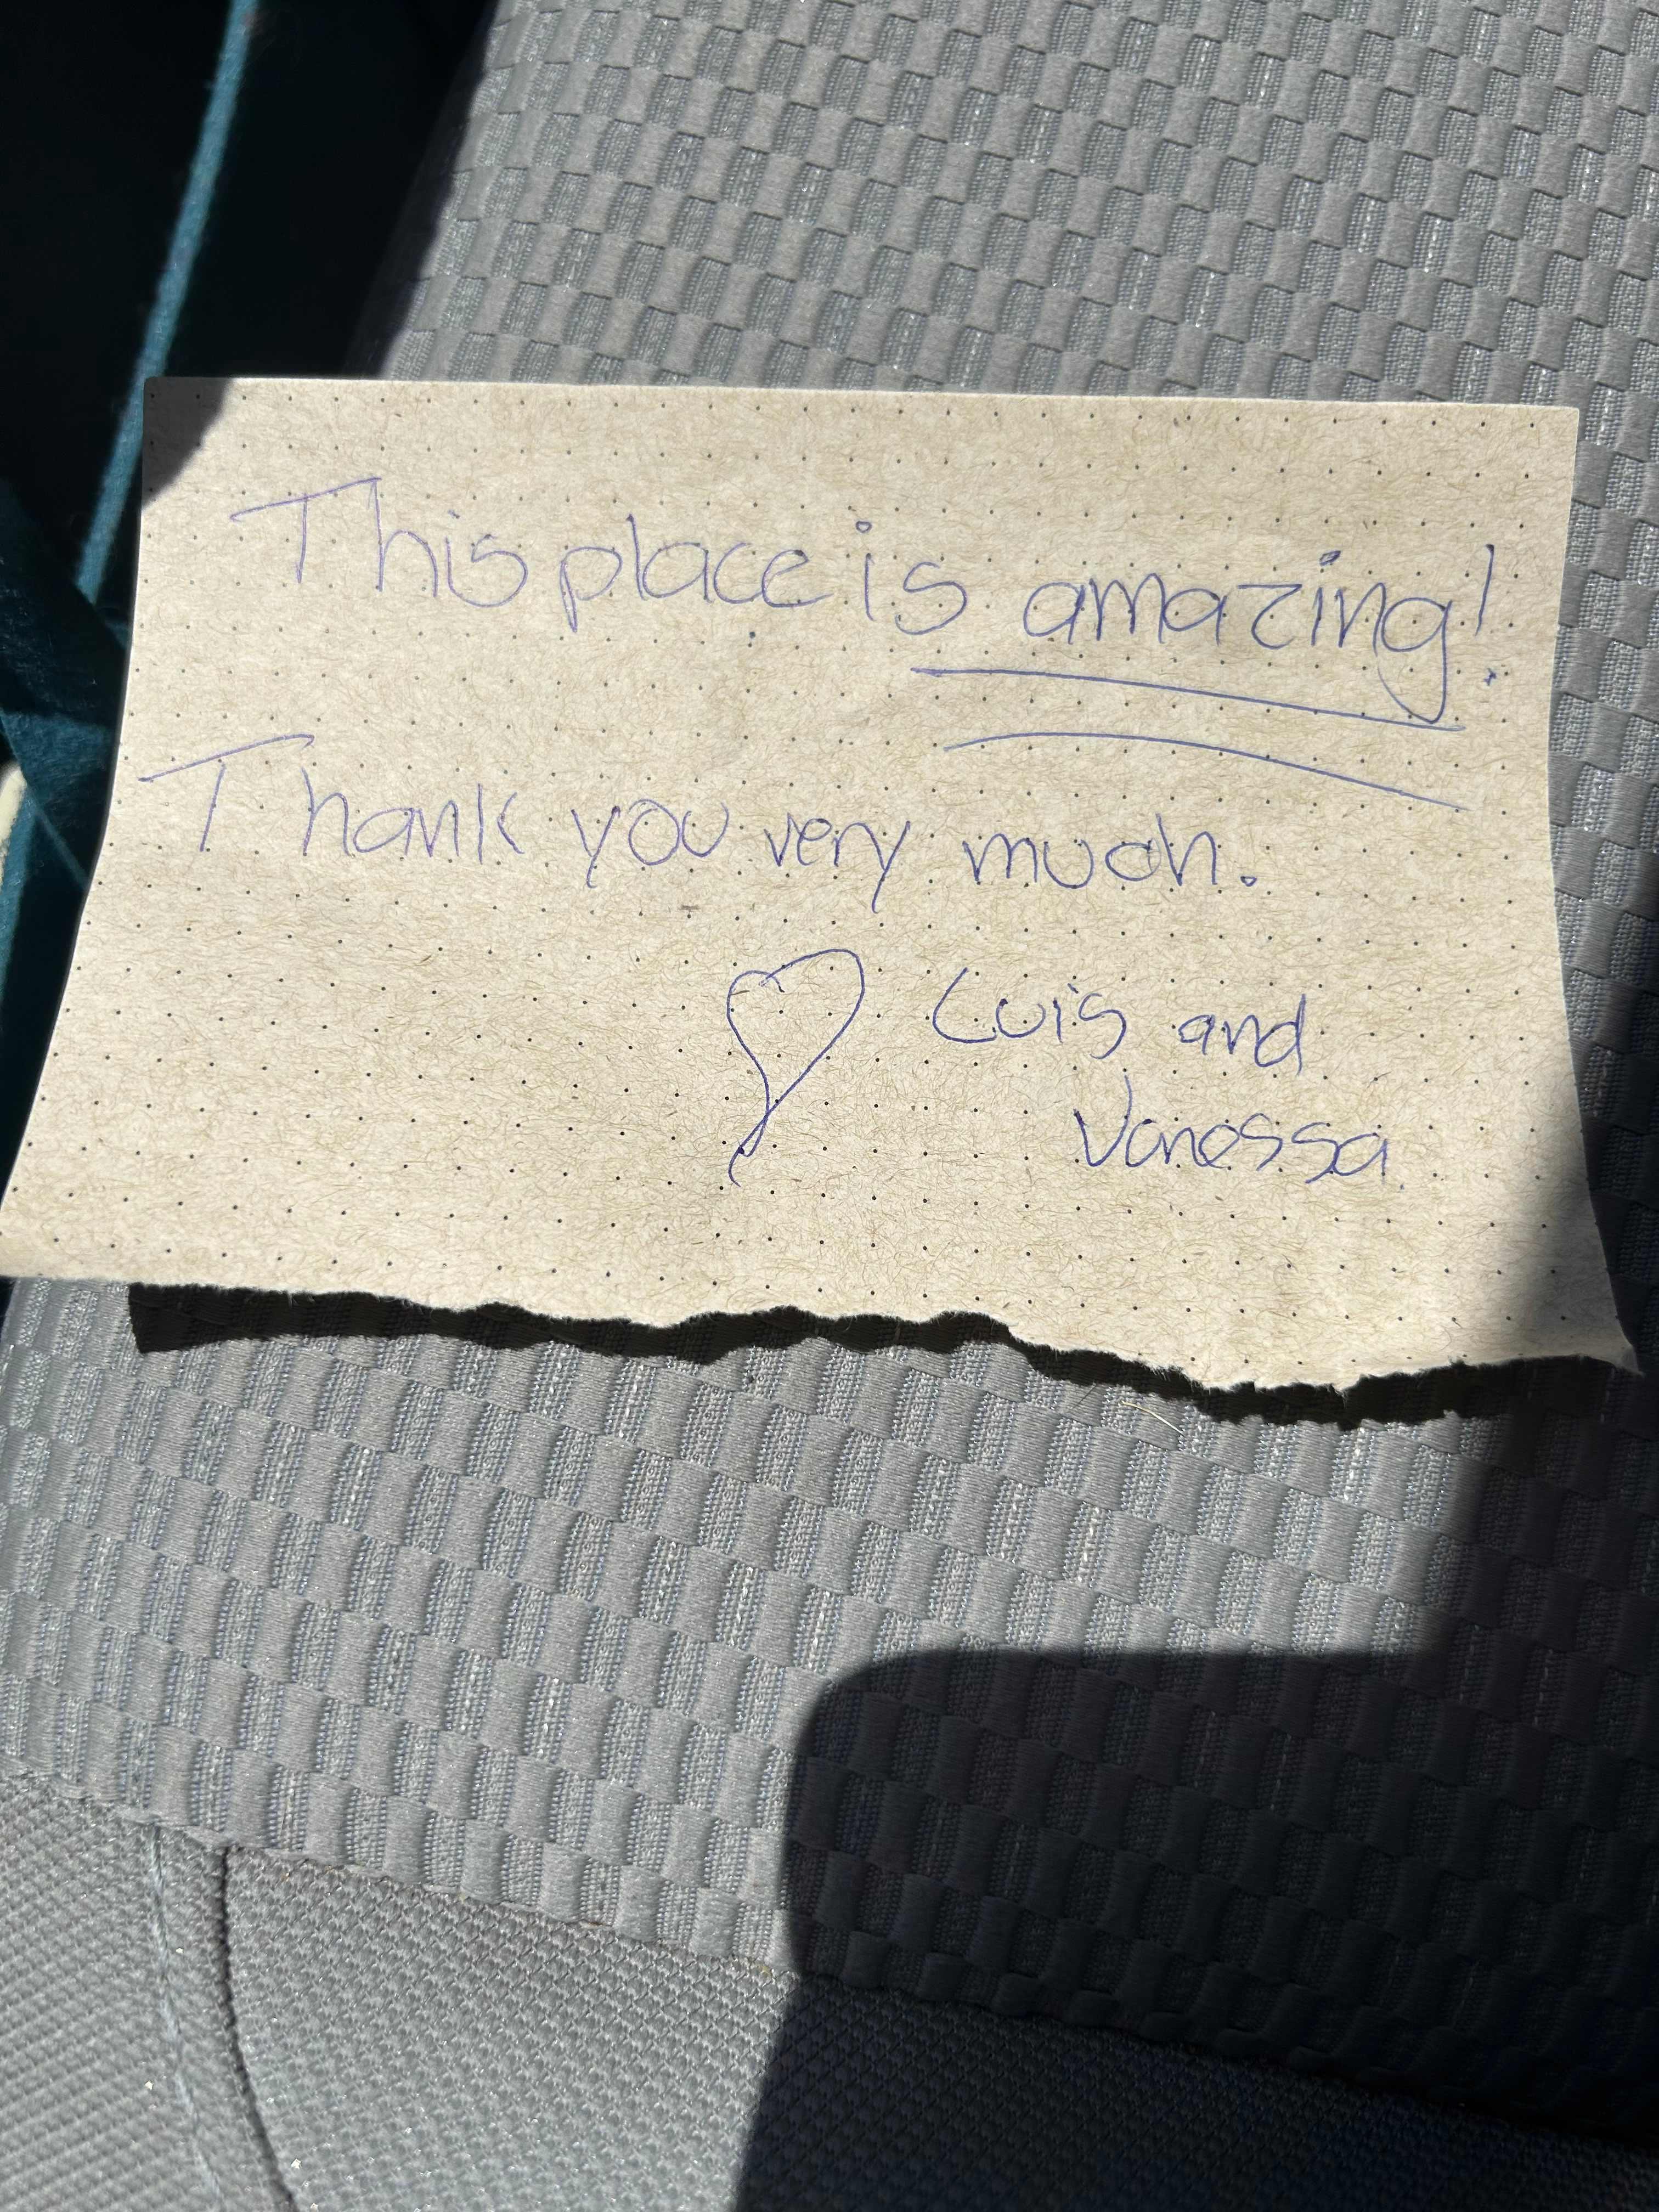 This place is amazing!
Thank you very much.
Luis and
Vanessa